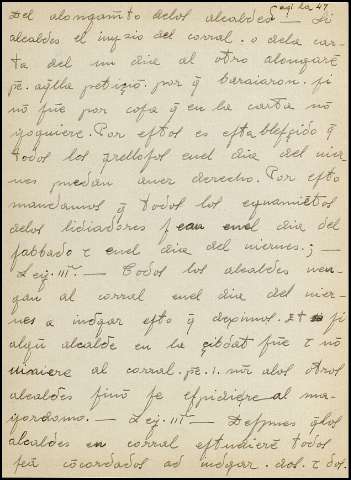 Del alongam̃to delos alcaldes — Si
alcaldes el inyzio del corral . o dela car-
ta del un dia al otro alongarẽ
pẽ . aq̃lla petiçiõ . por q̃ baraiaron . si
nõ fuẽ por cosa q̃ en la carta nõ
yoguiere . Por estos es establesçido q̃
todos los q̃rellosos enel dia del vier
nes puedan auer derecho . Por esto
mandamos q̃ todos los eguamiẽtos
delos lidiadores sean enel dia del
sabbado τ enel dia del viernes ; —
Leig . IIIª . — Todos los alcaldes ven-
gan al corral enel dia del vier-
nes a iudgar esto q̃ dexpmos . Et si
algũ alcalde en la çibdat fuẽ τ nõ
viniere al corral . pẽ . i . mr̃ alos otros
alcaldes sino se espidiere al ma-
yordomo . — Leig . IIIª — Depues q̃los
alcaldes en corral estuuierẽ todos
seã cõcordados ad iudgar . dos . τ dos .